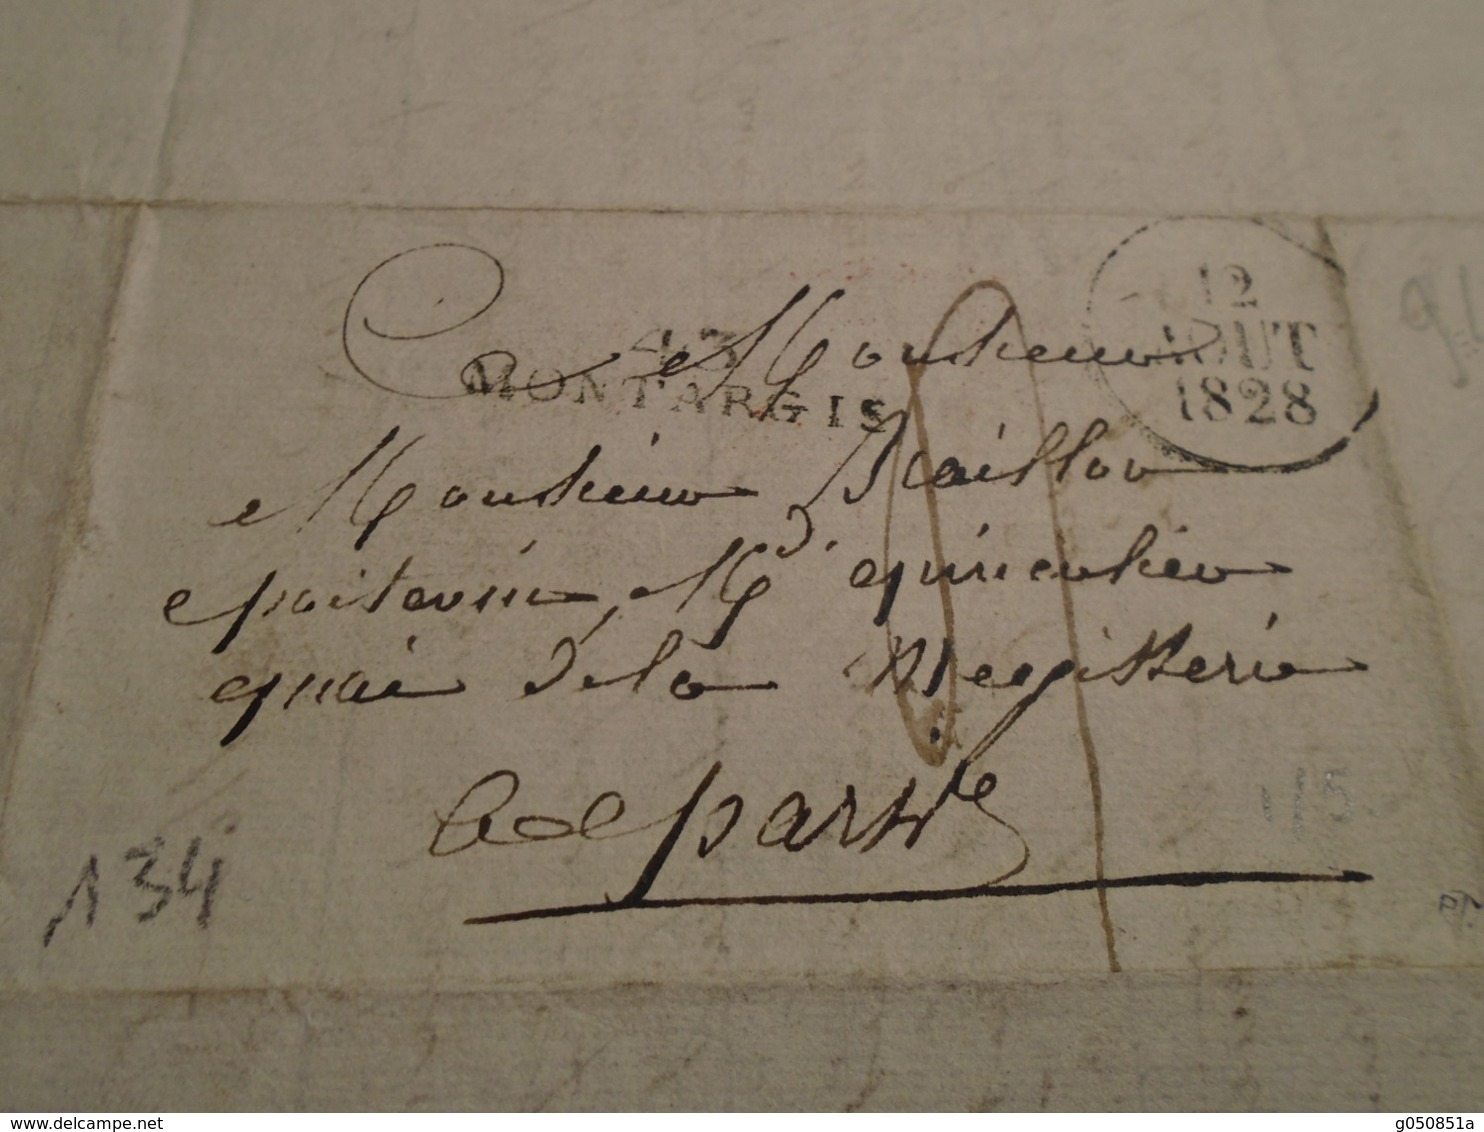 43
MONTARGIS
12
AOUT
1828
Monsieur
Monsieur Baillou
poitevin, Md. quincailler
quai de la Megisserie
a paris
134
115.
delcampe.net
g050851a